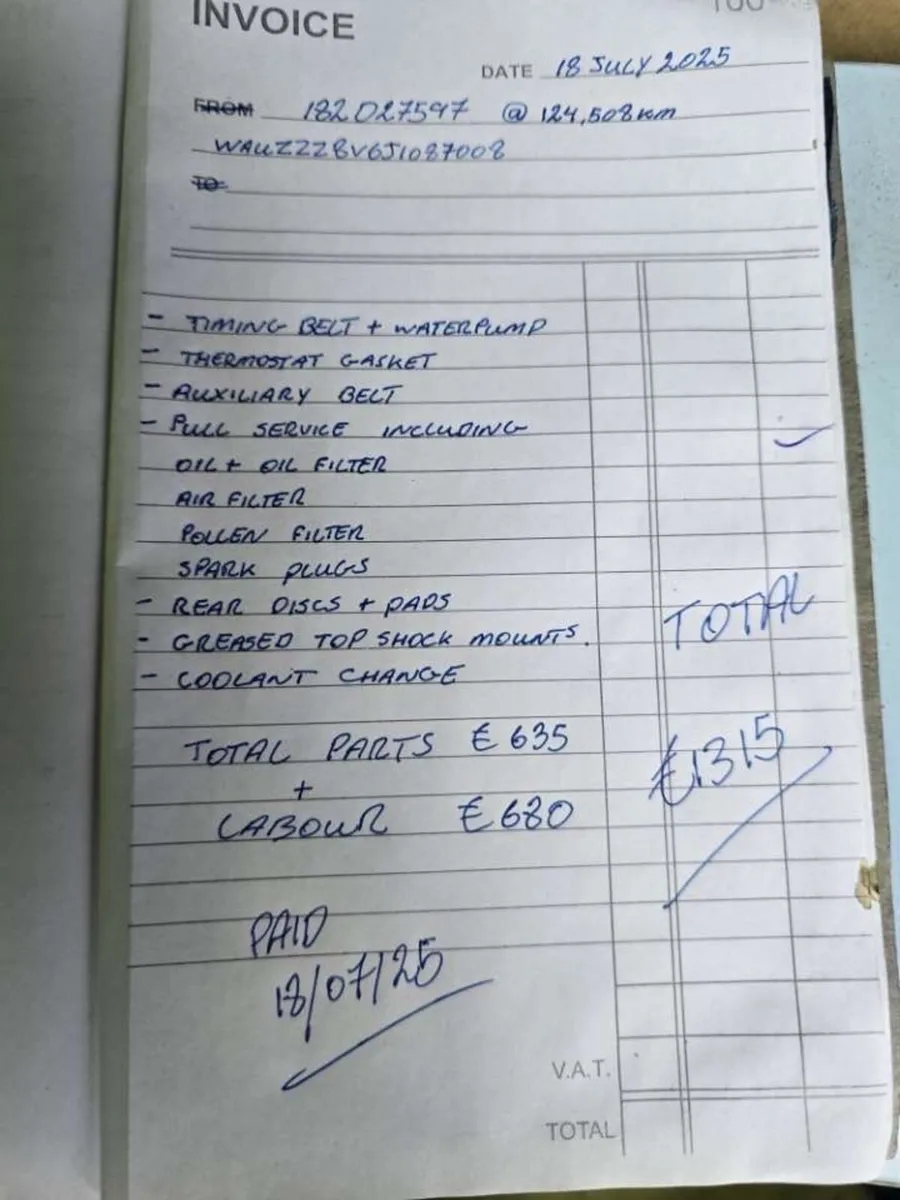 INVOICE
DATE 18 JULY 2025
FROM 182D27597 @ 124,508km
WAUZZZ8V6J1087008
TO
- TIMING BELT + WATERPUMP
- THERMOSTAT GASKET
- AUXILIARY BELT
- FULL SERVICE INCLUDING
OIL + OIL FILTER
AIR FILTER
POLLEN FILTER
SPARK PLUGS
- REAR DISCS + PADS
- GREASED TOP SHOCK MOUNTS.
- COOLANT CHANGE
TOTAL
TOTAL PARTS €635
+
LABOUR €680
€1315
PAID
18/07/25
V.A.T.
TOTAL